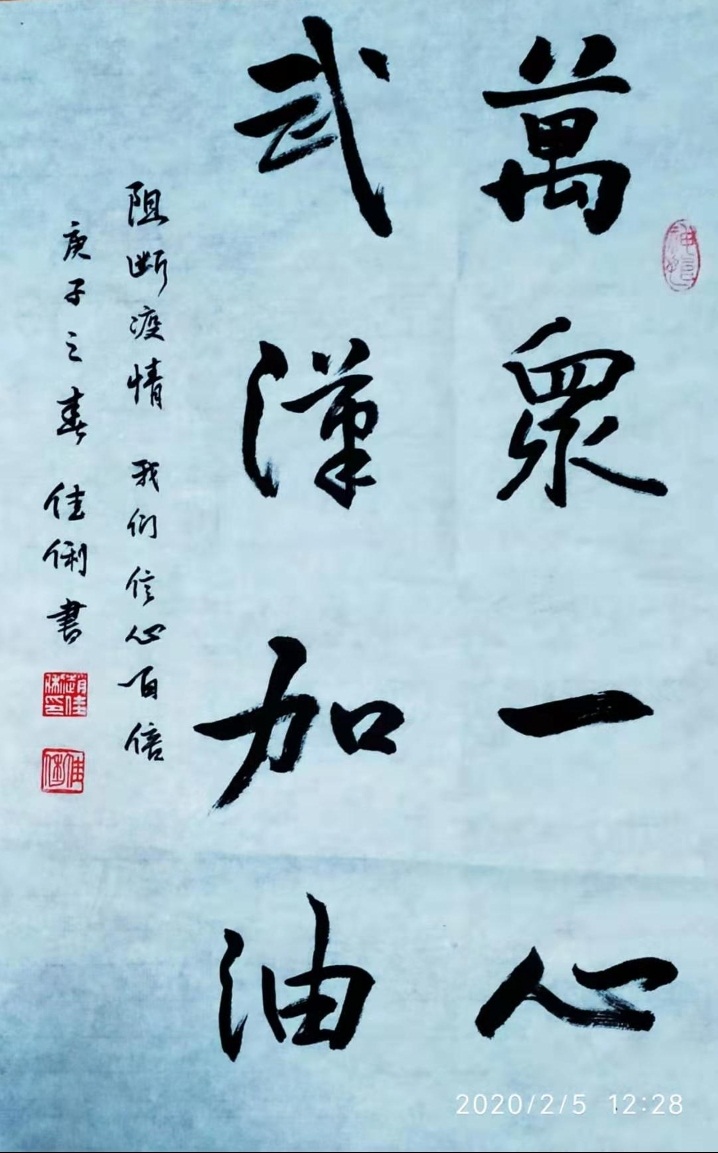 萬眾一心
武漢加油
阻斷疫情 我们信心百倍
庚子之春 佳俐書
2020/2/5 12:28